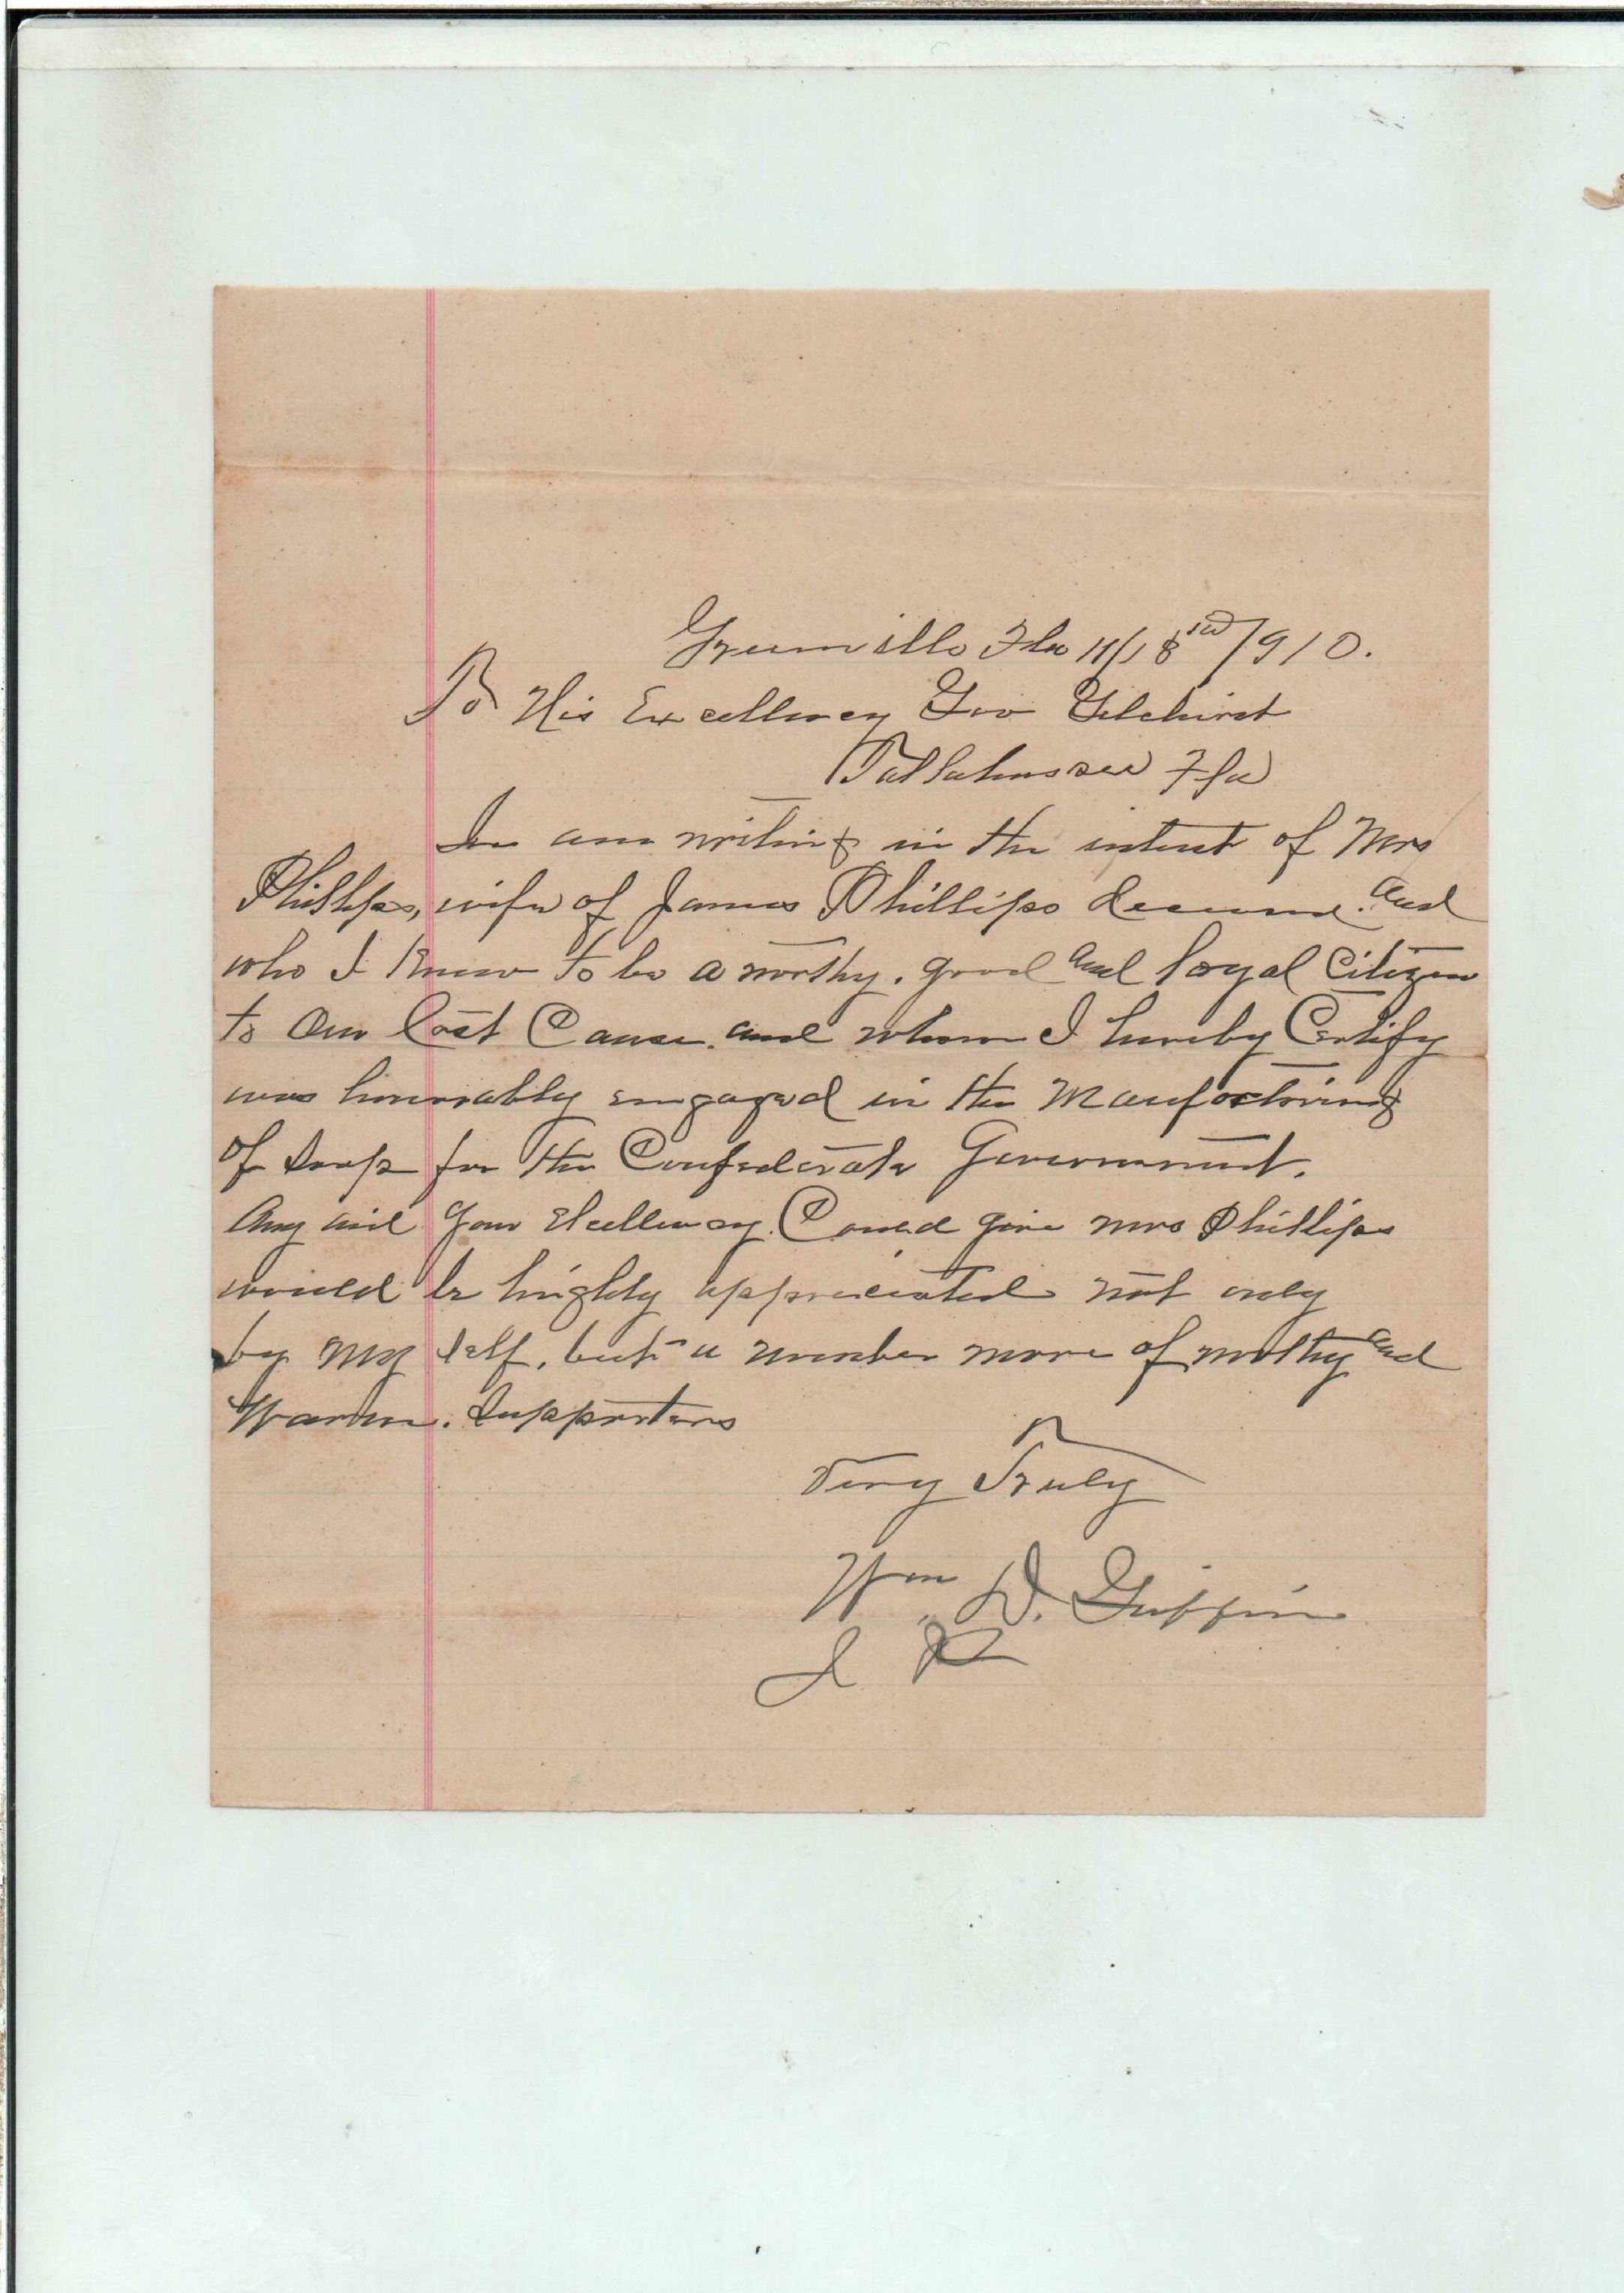 Greenville Fla 11/18 1910.
To His Excellency Gov Gilchirst
Tallahassee Fla
am writing in the intrest of Mrs
Phillips, wife of James Phillips deceased. and
who I knew to be a worthy, good and loyal Citizen
to Our lost Cause. and whom I hereby Certify
was honorably engaged in the Manufoctoring
of Soap for the Confederate Government.
Any aid your Excellency Could give Mrs Phillips
would be highly appreciated not only
by my self, but a number more of worthy and
Warm. Supporters
Very Truly
Wm D. Griffin
J P